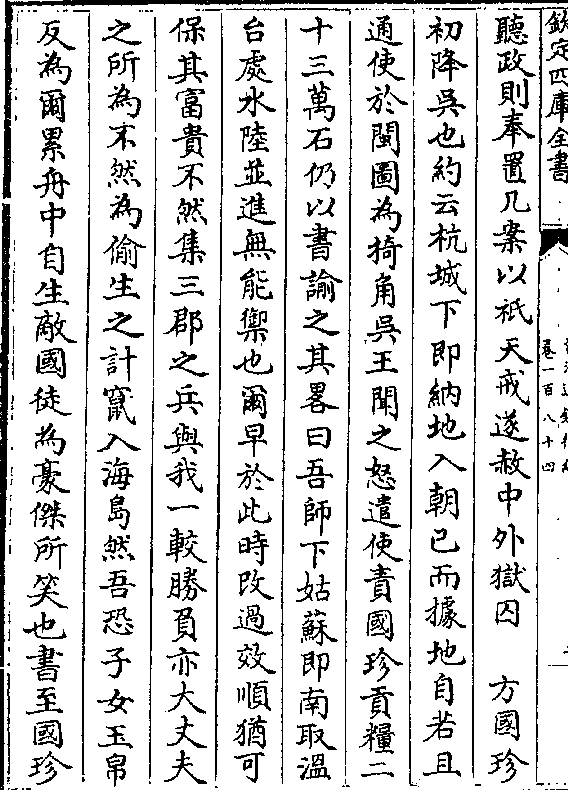 欽定四庫全書
卷一百八十四
聽政則奉置几案以祇天戒遂赦中外獄囚　方國珍
初降吳也約云杭城下即納地入朝已而據地自若且
通使於閩圖為掎角吳王聞之怒遣使責國珍貢糧二
十三萬石仍以書諭之其畧曰吾師下姑蘇即南取溫
台處水陸並進無能禦也爾早於此時改過效順猶可
保其富貴不然集三郡之兵與我一較勝負亦大丈夫
之所為不然為偷生之計竄入海島然吾恐子女玉帛
反為爾累舟中自生敵國徒為豪傑所笑也書至國珍